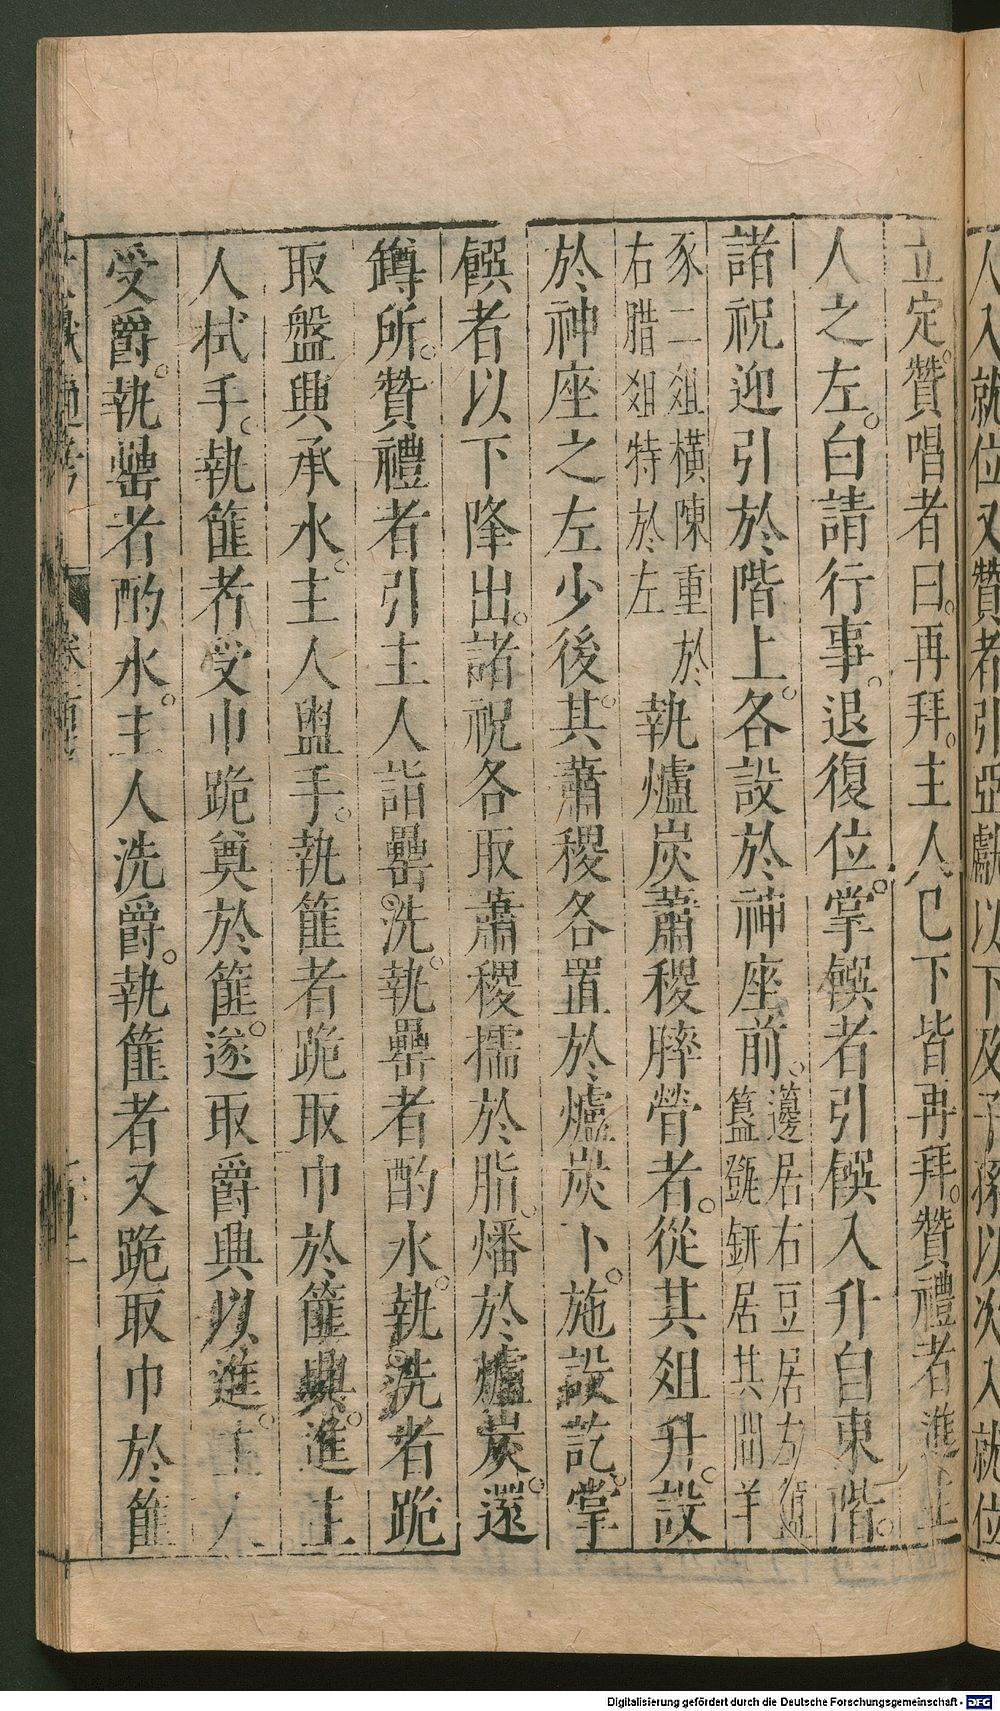 人入就位又贊者引亞獻以下及子孫以次入就位
立定。贊唱者曰。再拜。主人已下皆再拜。贊禮者進主
人之左。白請行事。退復位。掌饌者引饌入升自東階。
諸祝迎引於階上。各設於神座前。籩居右豆居左簠
簋㽅鈃居其間羊
豕二俎橫陳重於
右腊俎特於左
執爐炭蕭稷膟膋者。從其俎升。設
於神座之左少後。其蕭稷各置於爐炭下。施設訖。掌
饌者以下降出。諸祝各取蕭稷擩於脂。燔於爐炭。還
罇所。贊禮者引主人詣罍洗。執罍者酌水。執洗者跪
取盤興承水。主人盥手。執篚者跪取巾於篚興。進主
人拭手。執篚者受巾跪奠於篚。遂取爵興以進。主人
受爵。執罍者酌水。主人洗爵。執篚者又跪取巾於篚